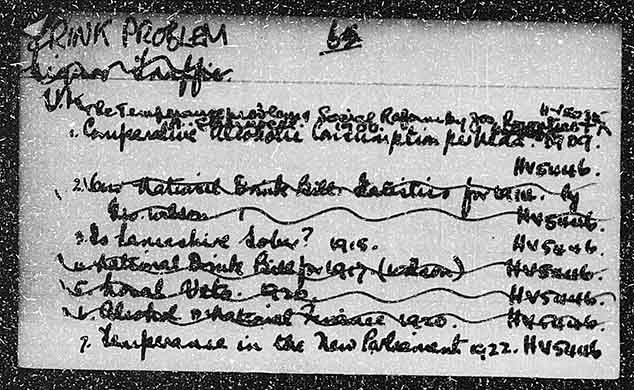 DRINK PROBLEM 62
Liquor Traffic.
U.K. The Temperance problem & Social Reform by Jos. Rowntree HV5035
1. Comparative Alcoholic Consumption per head. 1909.
HV5446.
2. Our National Drink Bill. Statistics for 1914. by
Geo. Wilson HV5446.
3. Is Lancashire Sober? 1918. HV5446.
4. National Drink Bill for 1917 (Wilson) HV5446.
5. Local Veto. 1920. HV5446.
6. Alcohol & National Finance 1920. HV5446.
7. Temperance in the New Parliament 1922. HV5446